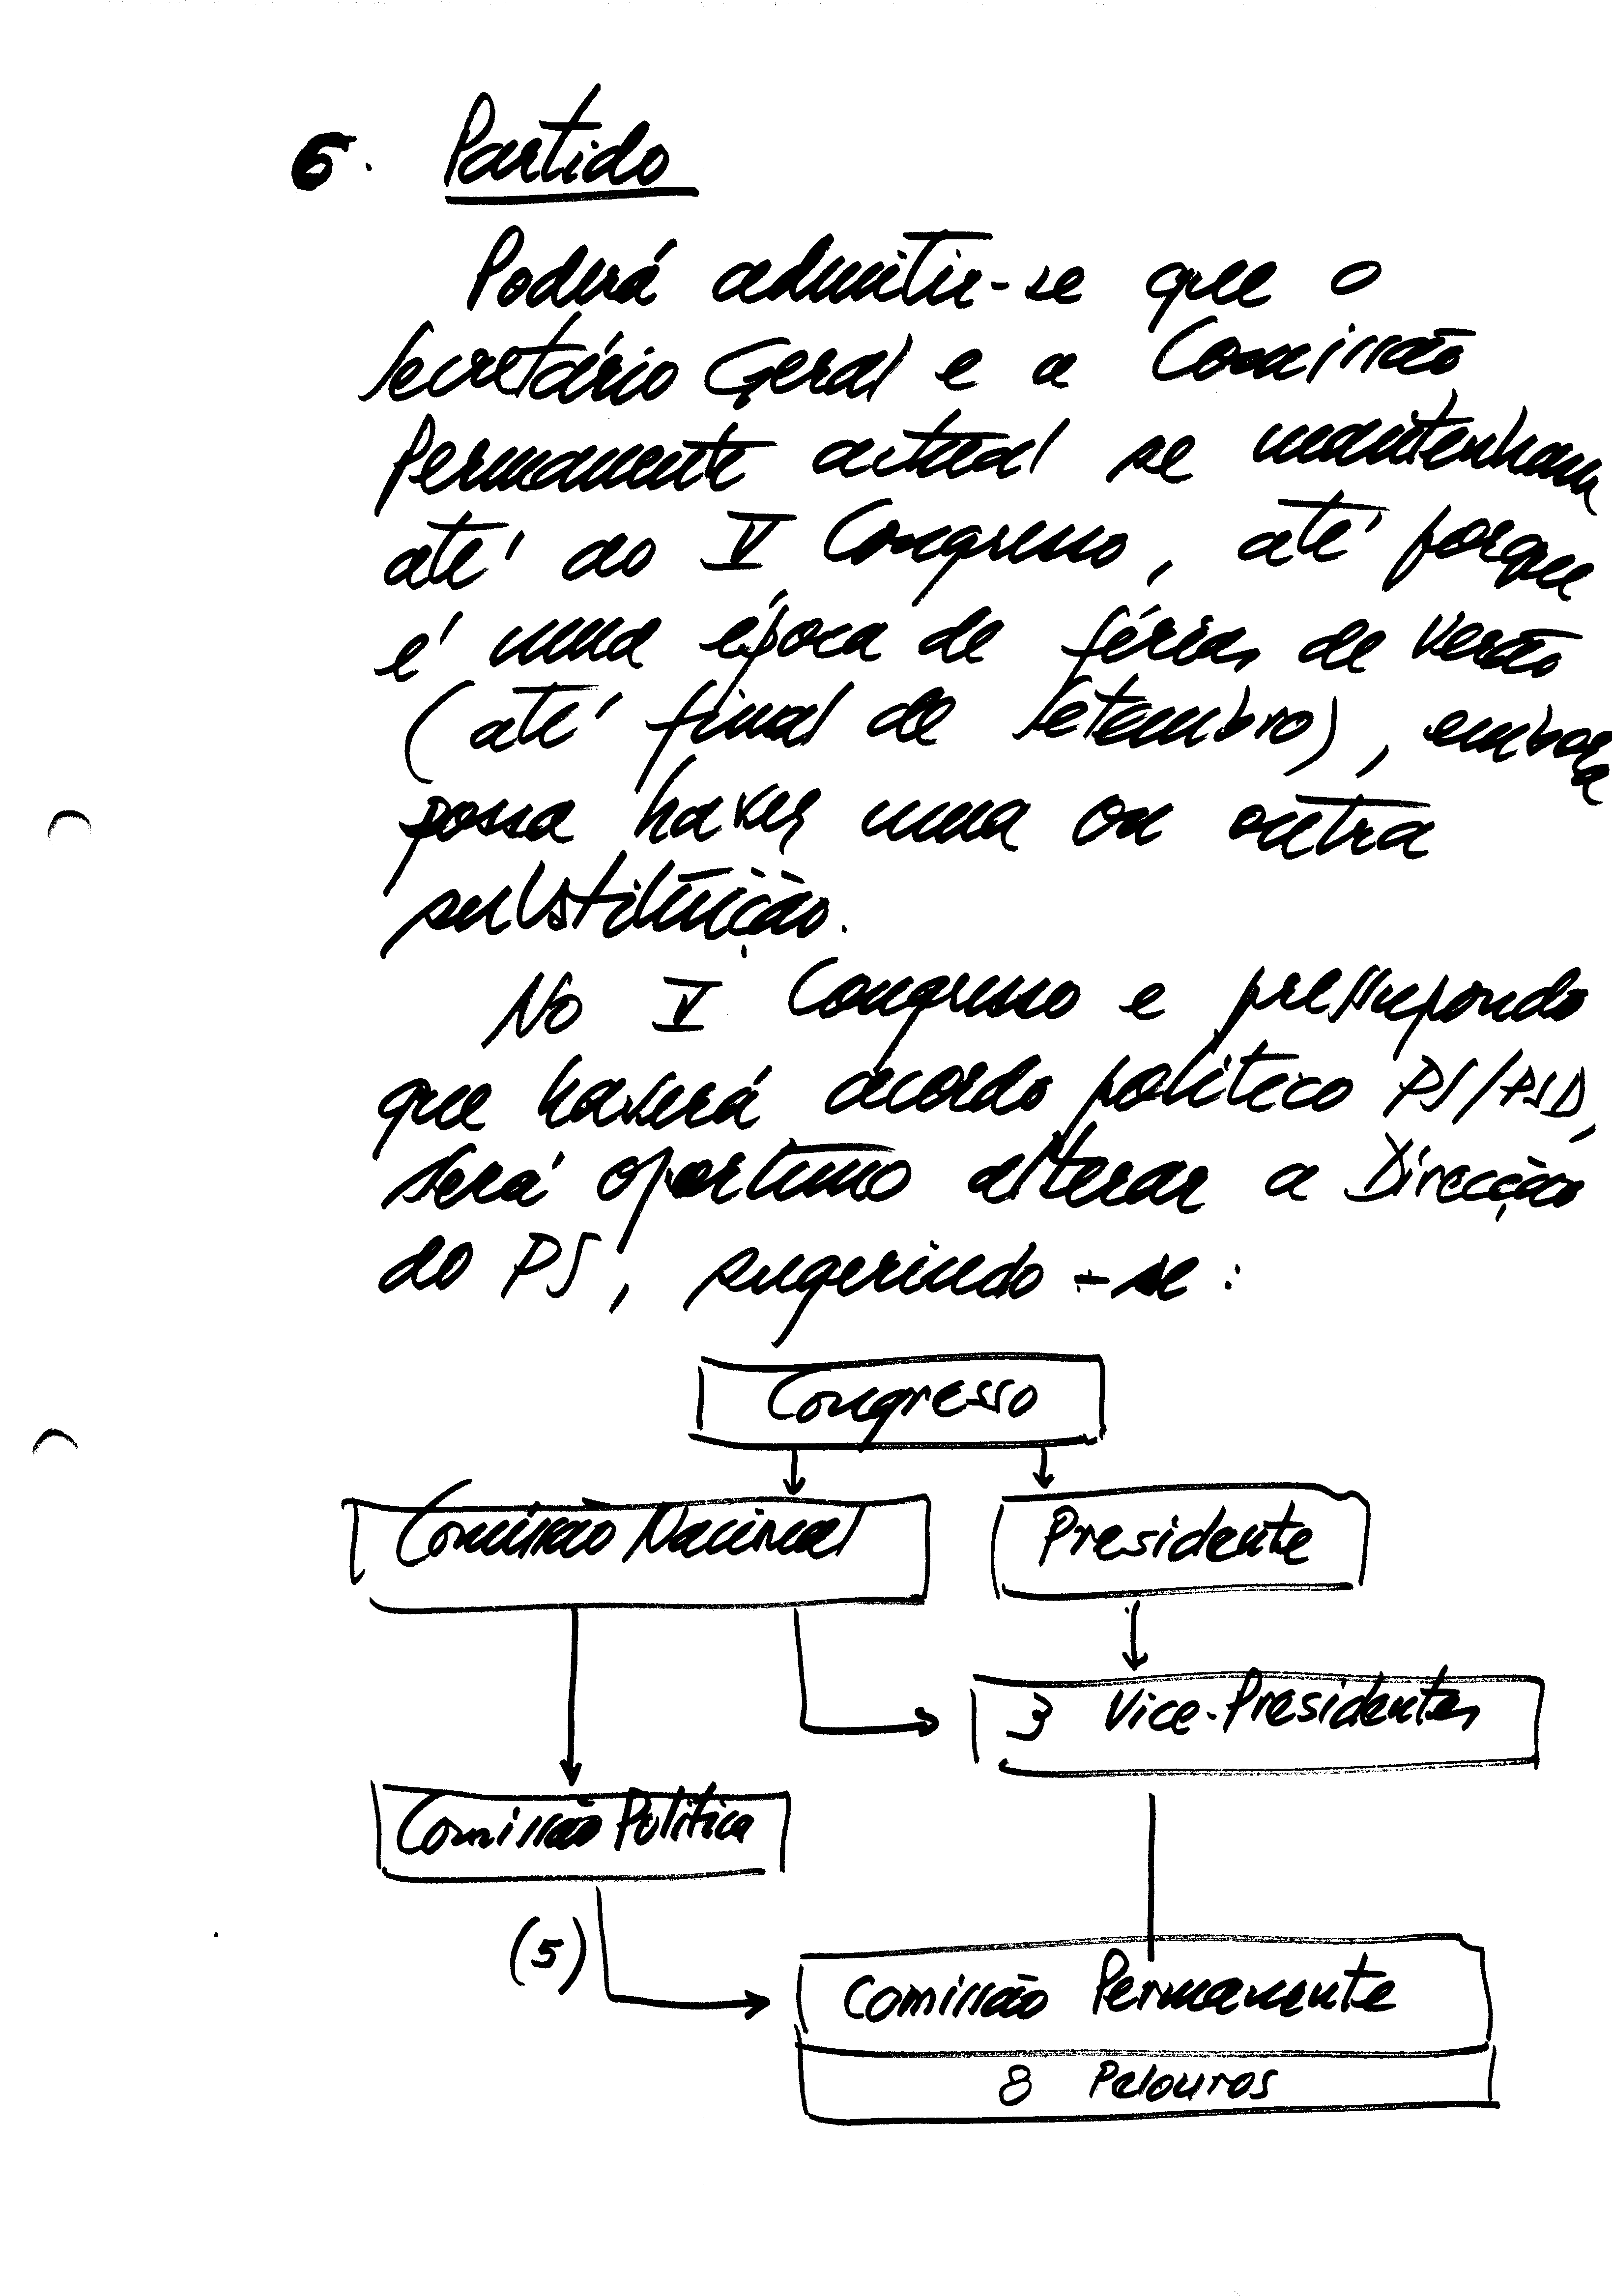 6. Partido
Poderá admitir-se que o
Secretário Geral e a Comissão
Permanente actual se mantenham
até ao V Congresso, até porque
é uma época de férias de verão
(até final de Setembro), embora
possa haver uma ou outra
substituição.
No V Congresso e pressupondo
que haverá acordo político PS/PSD,
será oportuno alterar a Direcção
do PS, sugerindo-se:
Congresso
Comissão Nacional
Presidente
3 Vice-Presidentes
Comissão Política
(5)
Comissão Permanente
8 Pelouros